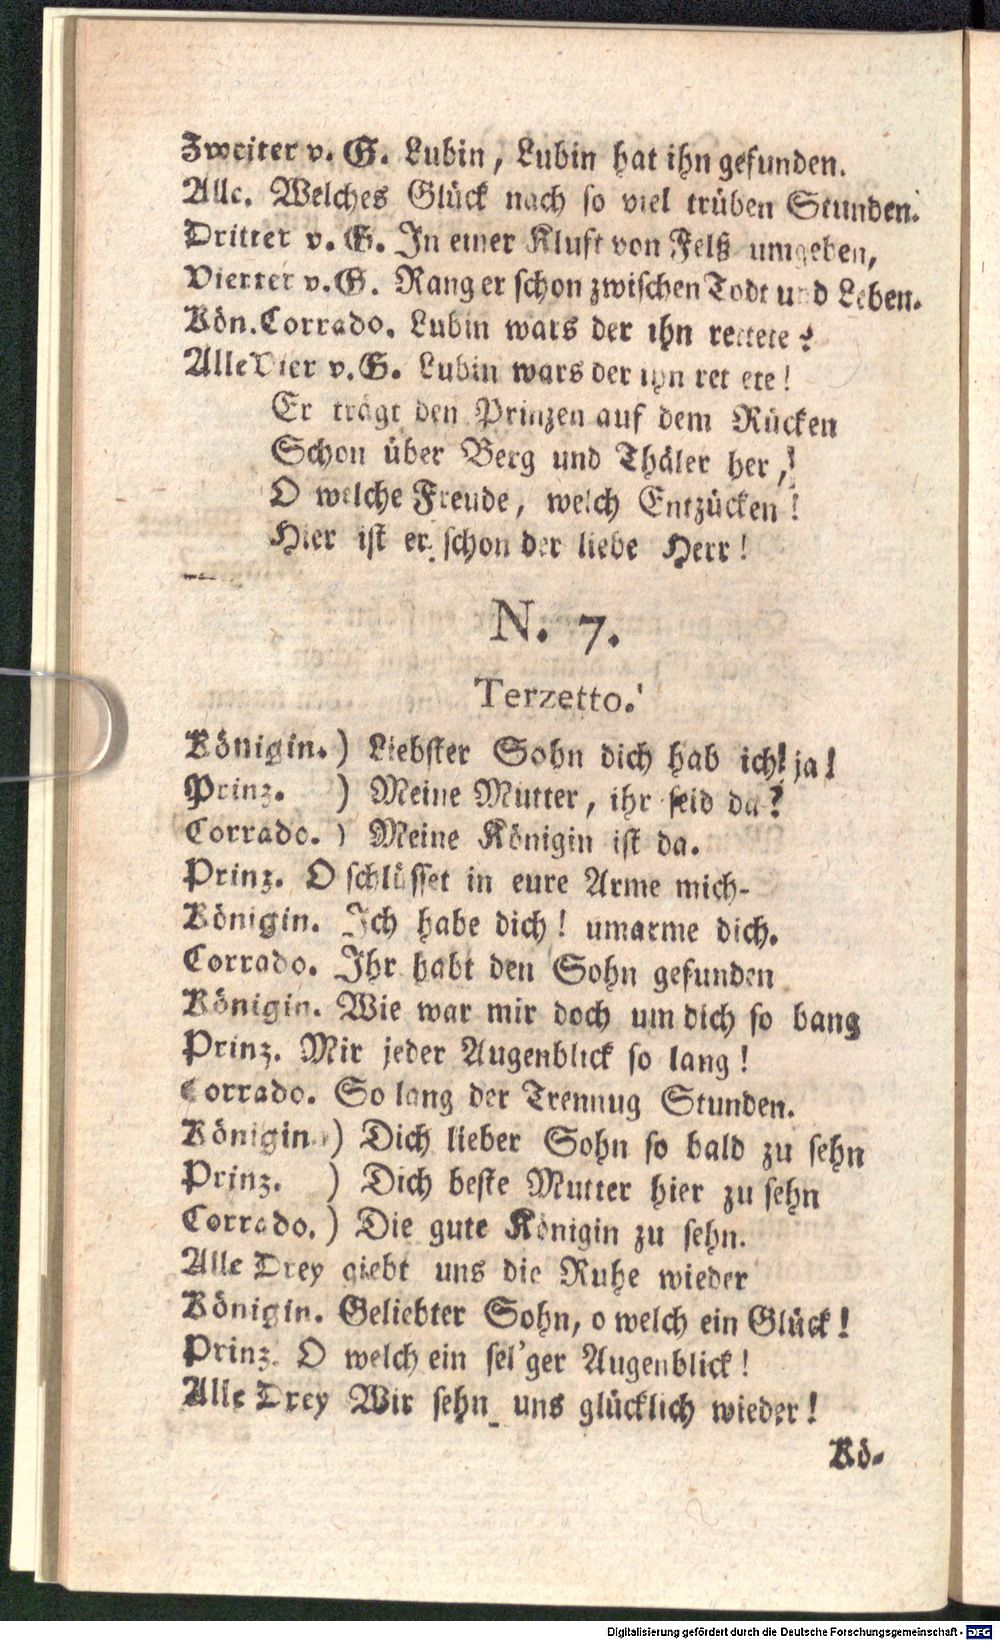 Zweiter v. G. Lubin, Lubin hat ihn gefunden.
Alle. Welches Glück nach so viel trüben Stunden.
Dritter v. G. In einer Kluft von Felß umgeben,
Vierter v. G. Rang er schon zwischen Todt und Leben.
Kön. Corrado. Lubin wars der ihn rettete?
Alle Vier v. G. Lubin wars der ihn rettete!
Er trägt den Prinzen auf dem Rücken
Schon über Berg und Thäler her,!
O welche Freude, welch Entzücken!
Hier ist er schon der liebe Herr!
N. 7.
Terzetto.
Königin. ) Liebster Sohn dich hab ich! ja!
Prinz. ) Meine Mutter, ihr seid da?
Corrado. ) Meine Königin ist da.
Prinz. O schlüsset in eure Arme mich-
Königin. Ich habe dich! umarme dich.
Corrado. Ihr habt den Sohn gefunden
Königin. Wie war mir doch um dich so bang
Prinz. Mir jeder Augenblick so lang!
Corrado. So lang der Trennug Stunden.
Königin ) Dich lieber Sohn so bald zu sehn
Prinz. ) Dich beste Mutter hier zu sehn
Corrado. ) Die gute Königin zu sehn.
Alle Drey giebt uns die Ruhe wieder
Königin. Geliebter Sohn, o welch ein Glück!
Prinz. O welch ein sel'ger Augenblick!
Alle Drey Wir sehn uns glücklich wieder!
Kö-
Digitalisierung gefördert durch die Deutsche Forschungsgemeinschaft - DFG